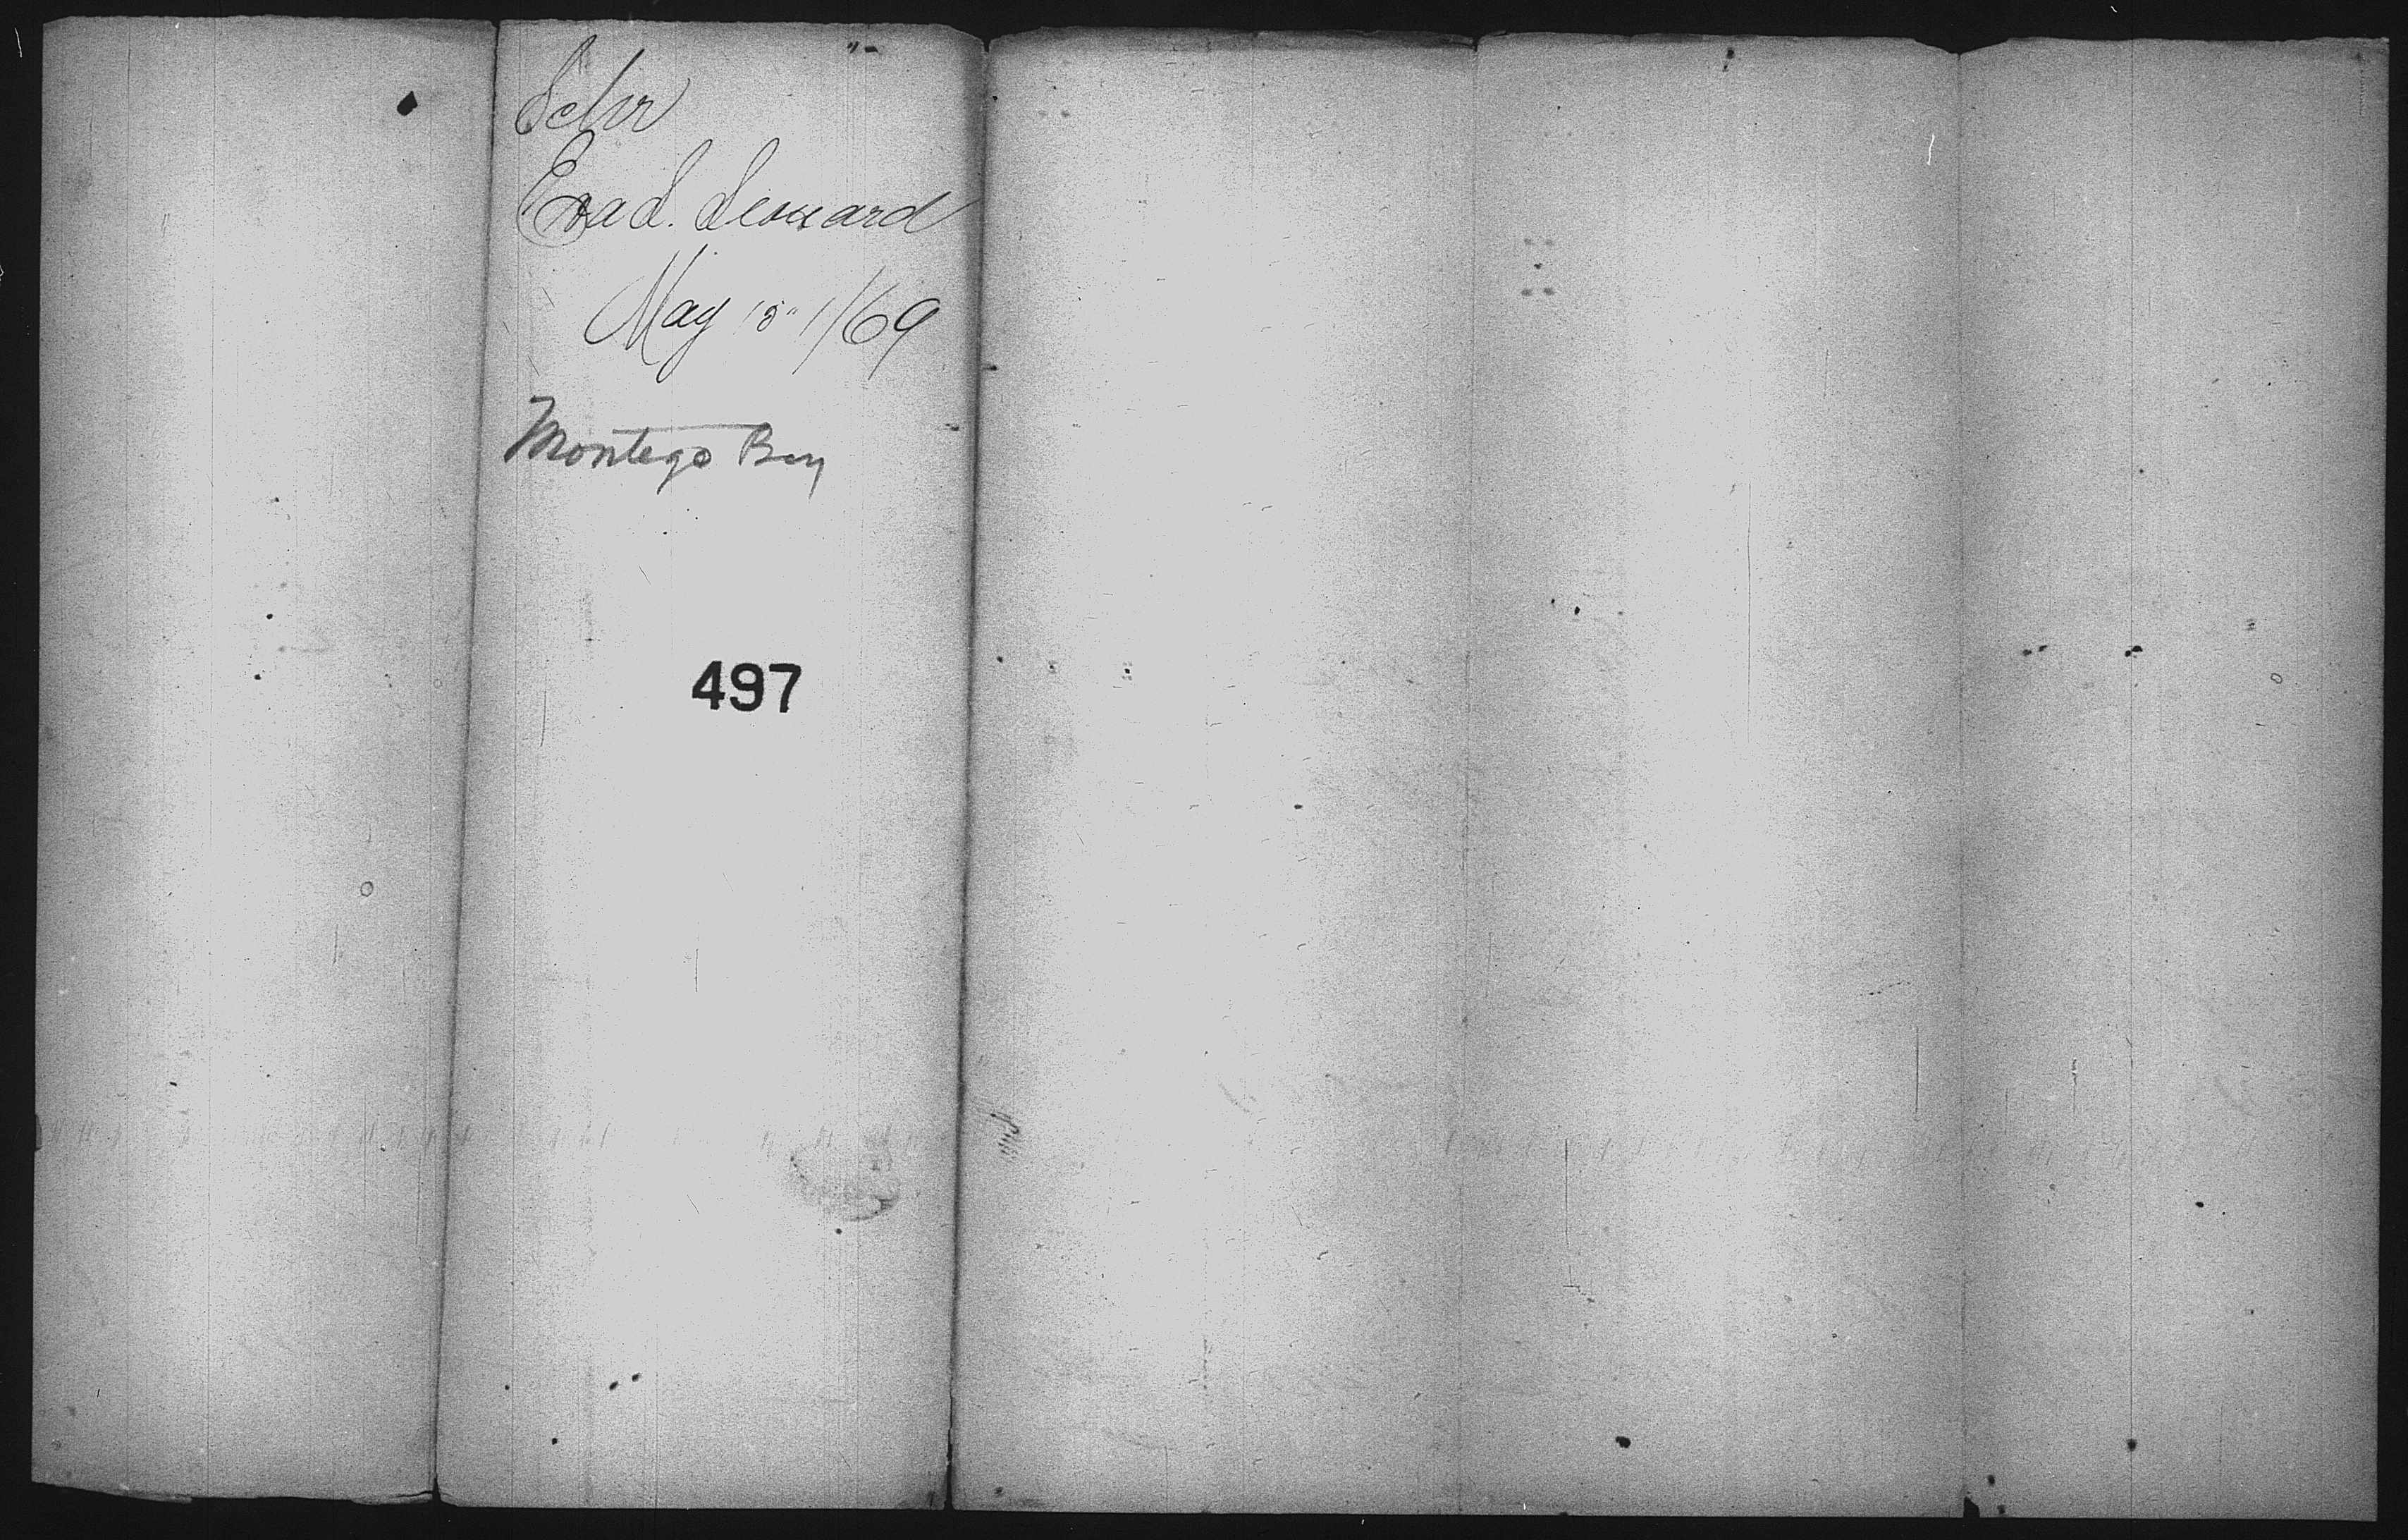 Schr
Eva L. Leonard
May 15" 1/69
Montego Bay
497